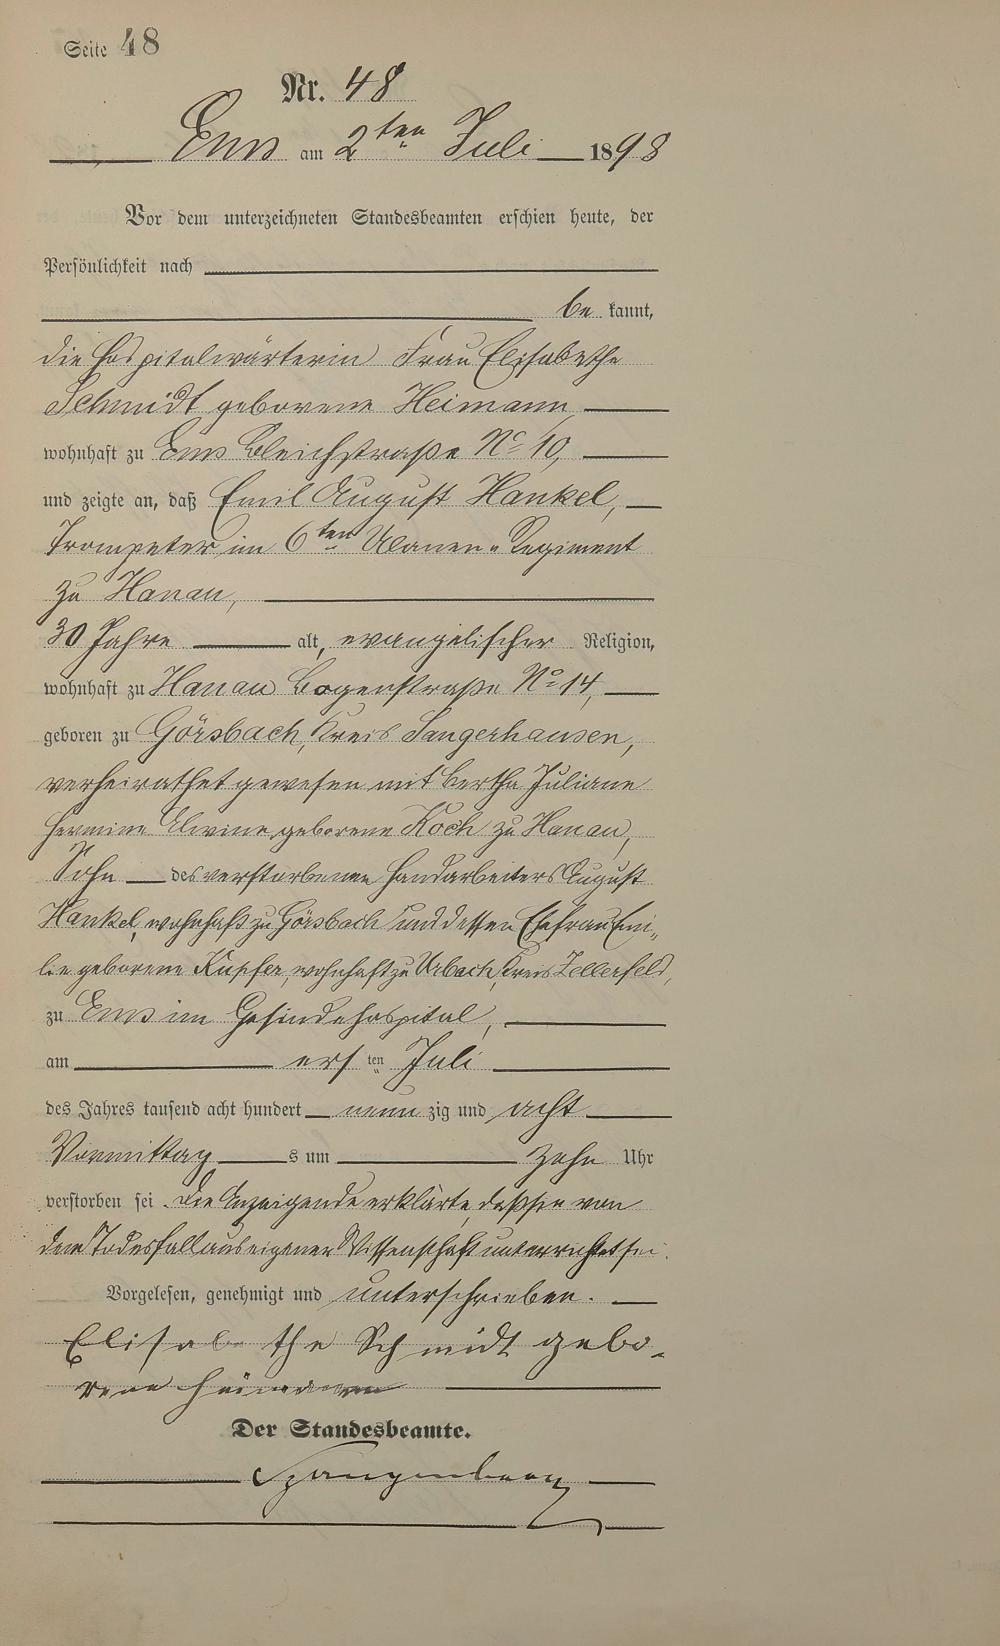 Seite 48
Nr. 48
Ems am 2ten Juli 1898
Vor dem unterzeichneten Standesbeamten erschien heute, der
Persönlichkeit nach
be kannt,
die Hospitalwärterin Frau Elisabethe
Schmidt geborene Heimann
wohnhaft zu Ems Bleichstraße No 10,
und zeigte an, daß Emil August Hankel,
Trompeter im 6ten Ulanen-Regiment
zu Hanau,
30 Jahre alt, evangelischer Religion,
wohnhaft zu Hanau Bogenstraße No 14,
geboren zu Görsbach, Kreis Sangerhausen,
verheirathet gewesen mit Bertha Juliane
Hermine Alwine geborene Koch zu Hanau,
Sohn des verstorbenen Handarbeiters August
Hankel, wohnhaft zu Görsbach und dessen Ehefrau Emi-
lie geborene Kupfer, wohnhaft zu Urbach, Kreis Zellerfeld,
zu Ems im Gesindehospital,
am ersten Juli
des Jahres tausend acht hundert neunzig und acht
Vormittags um zehn Uhr
verstorben sei. Die Anzeigende erklärte, daß sie von
dem Todesfall aus eigener Wissenschaft unterrichtet sei.
Vorgelesen, genehmigt und unterschrieben.
Elisabethe Schmidt gebo-
rene Heimann
Der Standesbeamte.
Spangenberg